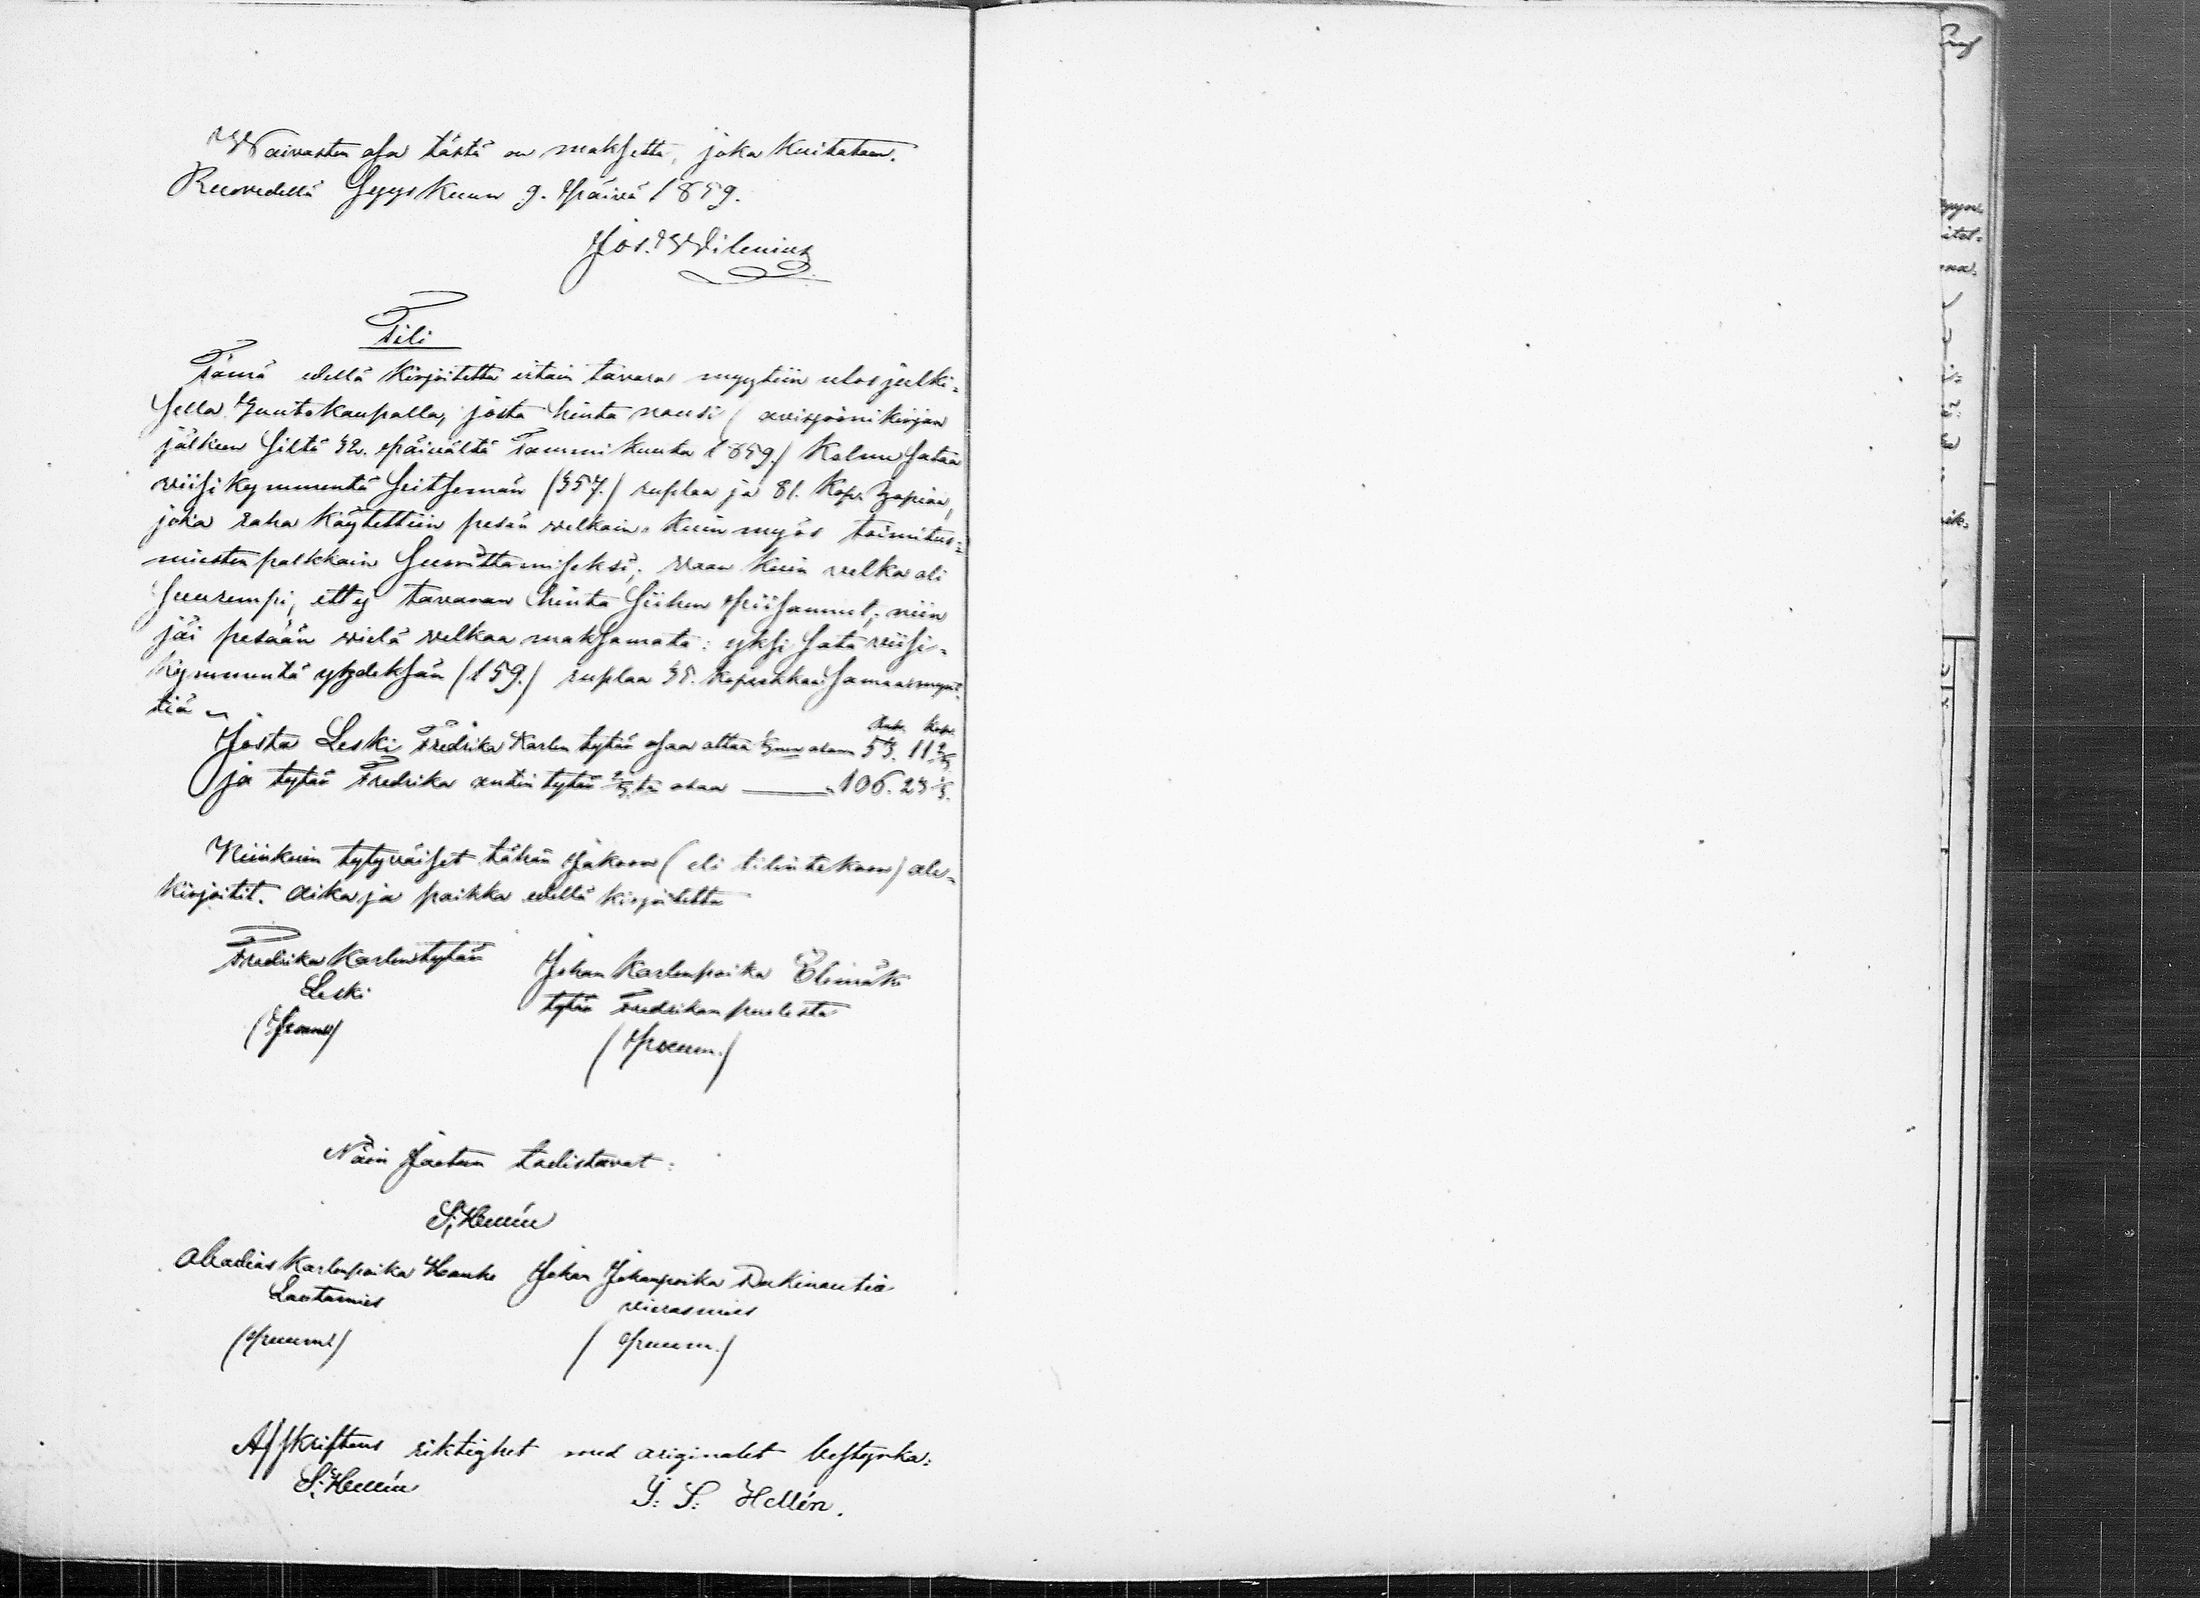 Waivasten osa tästä on maksettu, joka kuitataan.
Ruovedellä Syyskuun 9. päivä 1859.
Jos. Wilenius
Tili
Tämä edellä kirjoitettu irtain tavara myytiin ulos julki-
sella huutokaupalla, josta hinta nousi (auisjooni kirjan
jälkeen siltä 12. päivältä Tammikuuta 1859.) Kolme sataa
viisi kymmentä seitsemän (357.) ruplaa ja 81. Kop. hopiaa,
joka raha käytettiin pesän velkain, kuin myös toimitus-
miesten palkkain suorittamiseksi; vaan kuin velka oli
suurempi, ettej tavaran hinta siihen piisannut, niin
jäi pesään vielä velkaa maksamata: yksi sata viisi-
kymmentä yhdeksän (159.) ruplaa 35. kopeekkaa samaa mynt-
tiä
Rub. Kop.
Josta Leski Fredrika Karlen tytär osaa ottaa 1/3 osan 53. 11 2/3
ja tytär Fredrika Antin tytär 2/3 osaa 106. 23 1/3.
Niinkuin tytyväiset tähän jakoon (eli tilintekoon) ale-
kirjoitit. Aika ja paikka edellä kirjoitettu
Fredrika Karlentytär Johan Karlenpoika Elimäki
Leski tytär Fredrikan puolesta
(Puum.)
Näin jaetun todistavat:
S. Hellén
Abadias Karlenpoika Hanho Johan Johanpoika
Lautamies vierasmies
(puum.) (puum.)
Afskriftens riktighet med originalet bestyrka:
S. Hellén G. S. Hellén.